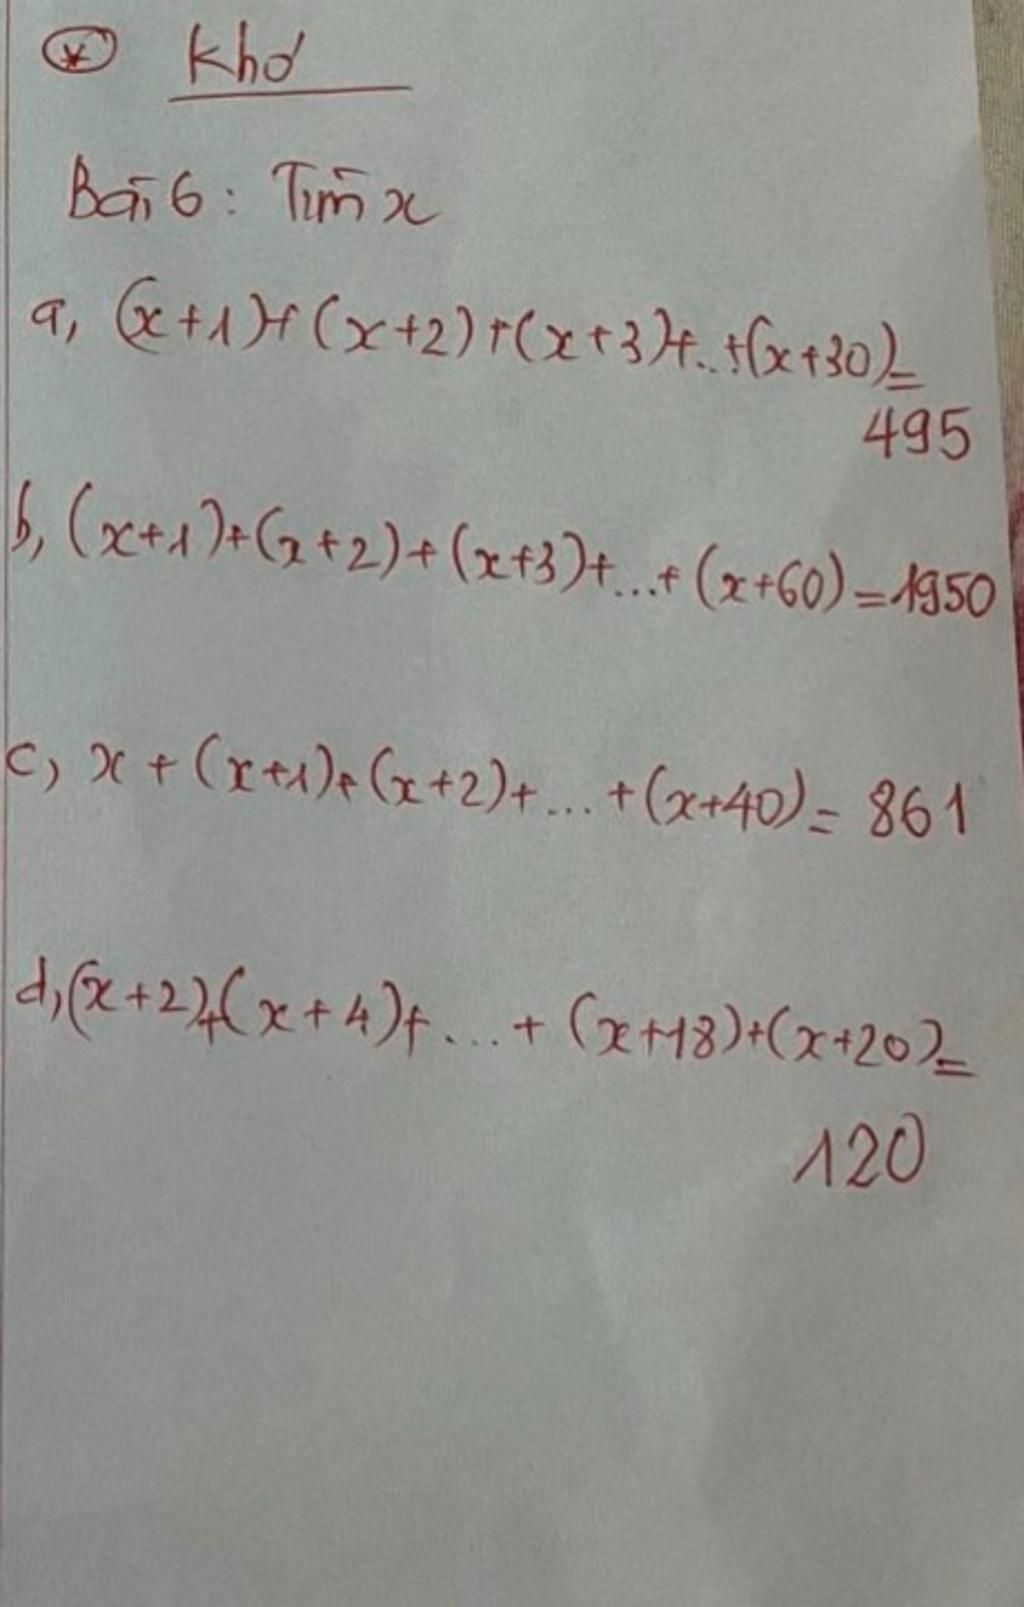 * Khó
Bài 6: Tìm x
a, (x+1)+(x+2)+(x+3)+..+(x+30)=
495
b, (x+1)+(x+2)+(x+3)+...+(x+60)=1950
c, x+(x+1)+(x+2)+...+(x+40)=861
d, (x+2)+(x+4)+...+(x+18)+(x+20)=
120